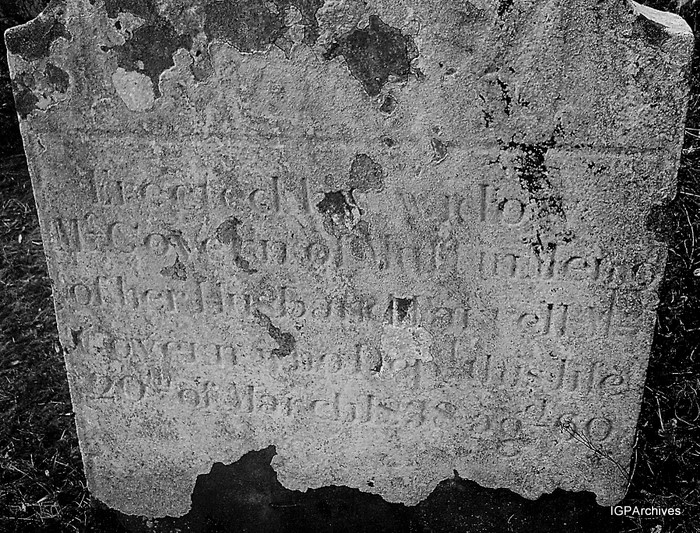 Erected by widow
McGovern of in Memo
of her Husband Farrell Mc
Govern who Depd this life
20th of March 1838 agd 60
IGPArchives